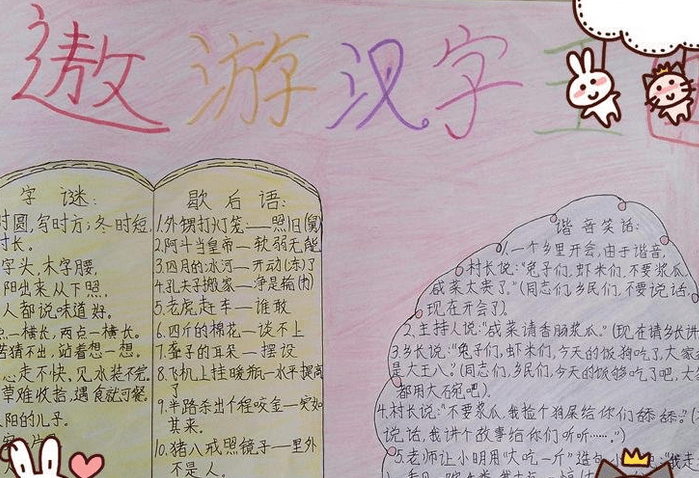 遨游汉字王
字谜:
时圆,写时方;冬时短,
时长。
字头,木字腰,
阳出来从下照,
人都说味道好。
点一横长,两点一横长。
若猜不出,站着想一想。
心走不快,见水装不完。
草难收拾,遇食就可餐。
太阳的儿子。
歇后语:
1.外甥打灯笼——照旧(舅)
2.阿斗当皇帝—软弱无能
3.四月的冰河—开动(冻)了
4.孔夫子搬家—净是输(书)
5.老虎赶车—谁敢
6.四斤的棉花—谈不上
7.聋子的耳朵—摆设
8.飞机上挂暖瓶—水平提高
了
9.半路杀出个程咬金—突如
其来。
10.猪八戒照镜子—里外
不是人。
谐音笑话:
1.一个乡里开会,由于谐音,
村长说:“兔子们,虾米们,不要浆瓜,
咸菜太贵了。”(同志们,乡民们,不要说话,
现在开会了)
2.主持人说:“咸菜请香肠浆瓜。”(现在请乡长讲
3.乡长说:“兔子们,虾米们,今天的饭狗吃了,大家
是大王八。”(同志们,乡民们,今天的饭够吃了吧,大
都用大碗吧).
4.村长说:“不要浆瓜,我捡个狗屎给你们舔舔。”(不
说话,我讲个故事给你们听听……。”)
5.老师让小明用“大吃一斤”造句,小